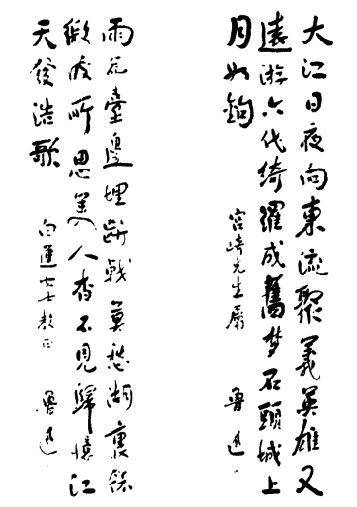 大江日夜向東流聚義英雄又
遠游六代綺羅成舊夢石頭城上
月如鉤
宮崎先生屬 魯迅
雨花臺邊埋斷戟莫愁湖裏餘
微波所思美人杳不見歸憶江
天發浩歌
白蓮女士教正 魯迅